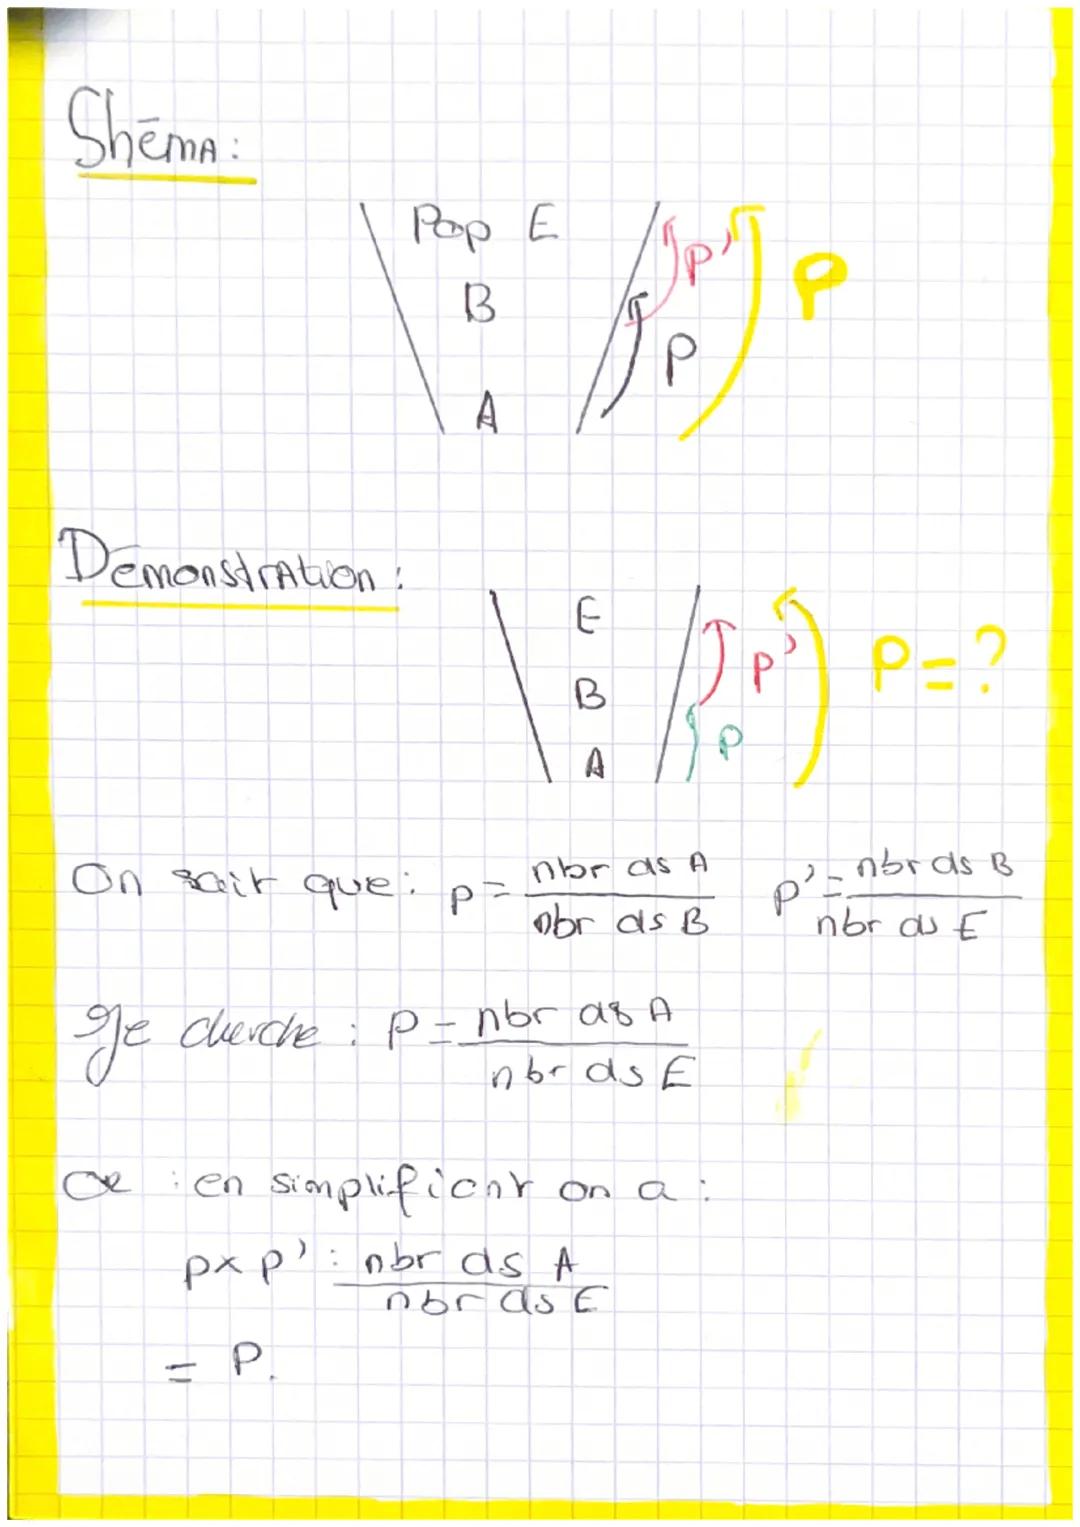 Shéma :
Pop E
p'
P
B
p
A
Démonstration :
E
p'
P = ?
B
p
A
On sait que : p = nbr ds A / nbr ds B p' = nbr ds B / nbr ds E
Je cherche : P = nbr ds A / nbr ds E
: en simplifiant on a :
p x p' : nbr ds A / nbr ds E
= P.